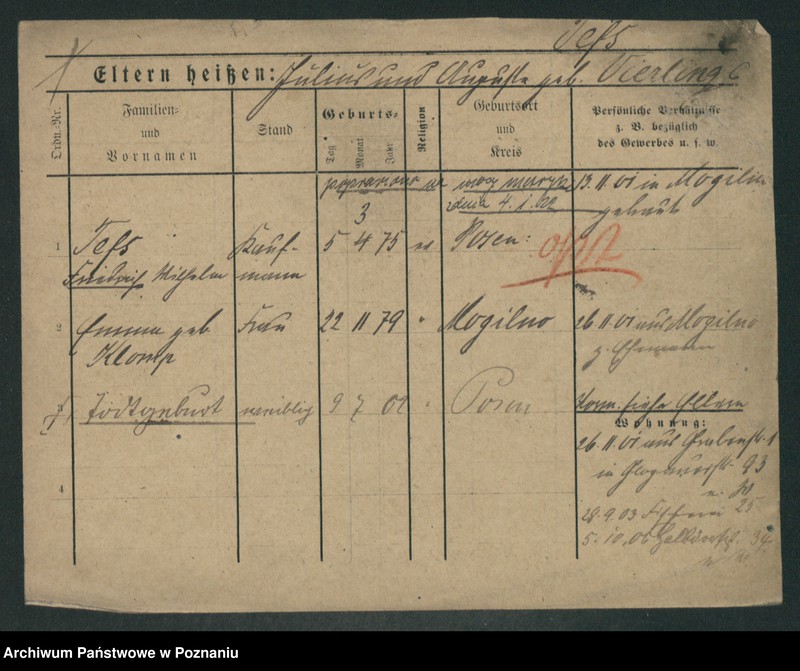 Tefs
Eltern heißen: Julius und Auguste geb. Vierling
Ordn.-Nr.
Familien- und Vornamen
Stand
Geburts-
Tag Monat Jahr
Religion
Geburtsort und Kreis
Persönliche Verhältnisse
z. B. bezüglich
des Gewerbes u. s. w.
poprawiono
dnia 4. I. 62
13. 11 01 in Mogilno
getraut
3
1 Tefs Kauf- 5 4 75 ev Posen
Friedrich Wilhelm mann
2 Emma geb Frau 22 11 79 " Mogilno 26 11 01 aus Mogilno
Klomp z. Ehemann
3 Todtgeburt weiblig 9 7 02 " Posen siehe Eltern
Wohnung:
26. 11 01 aus Grabenstr. 1
in Glogauerstr. 93
4
28. 9. 03 25
5. 10. 06 34
Archiwum Państwowe w Poznaniu